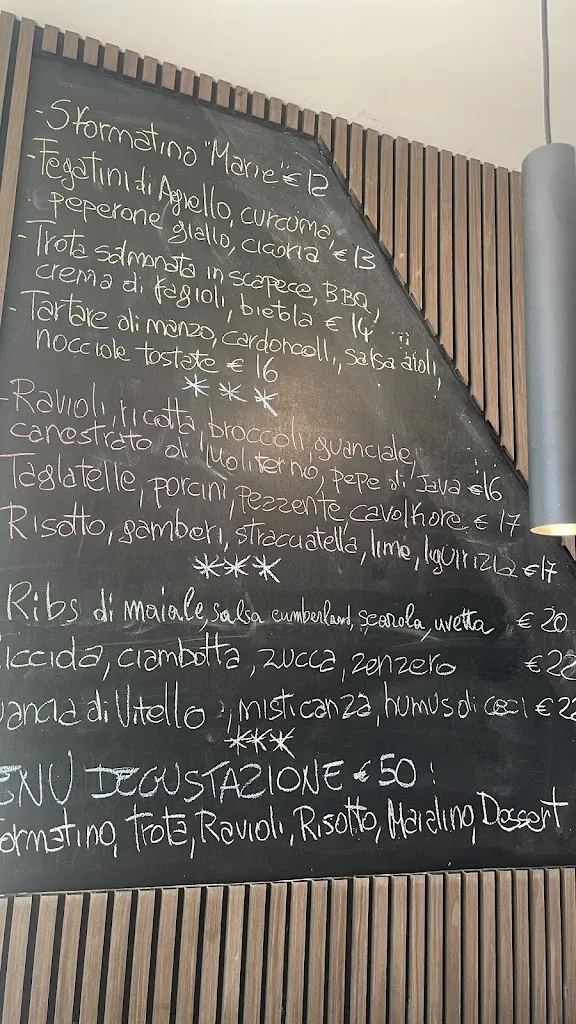 - Sformatino "Marie" € 12
- Fegatini di Agnello, curcuma,
peperone giallo, cicoria € 13
- Trota salmonata in scapece, BBQ,
crema di fagioli, bietola € 14
- Tartare di manzo, cardoncelli, salsa aioli,
nocciole tostate € 16
***
- Ravioli, ricotta broccoli, guanciale,
canestrato di Moliterno, pepe di Java € 16
Taglatelle, porcini, pezzente cavolfiore € 17
Risotto, gamberi, stracciatella, lime, liquirizia € 17
***
Ribs di maiale, salsa cumberland, scarola, uvetta € 20
iccida, ciambotta, zucca, zenzero € 22
uancia di Vitello, misticanza, humus di ceci € 22
***
ENU DEGUSTAZIONE € 50!
formatino, Trota, Ravioli, Risotto, Maialino, Dessert